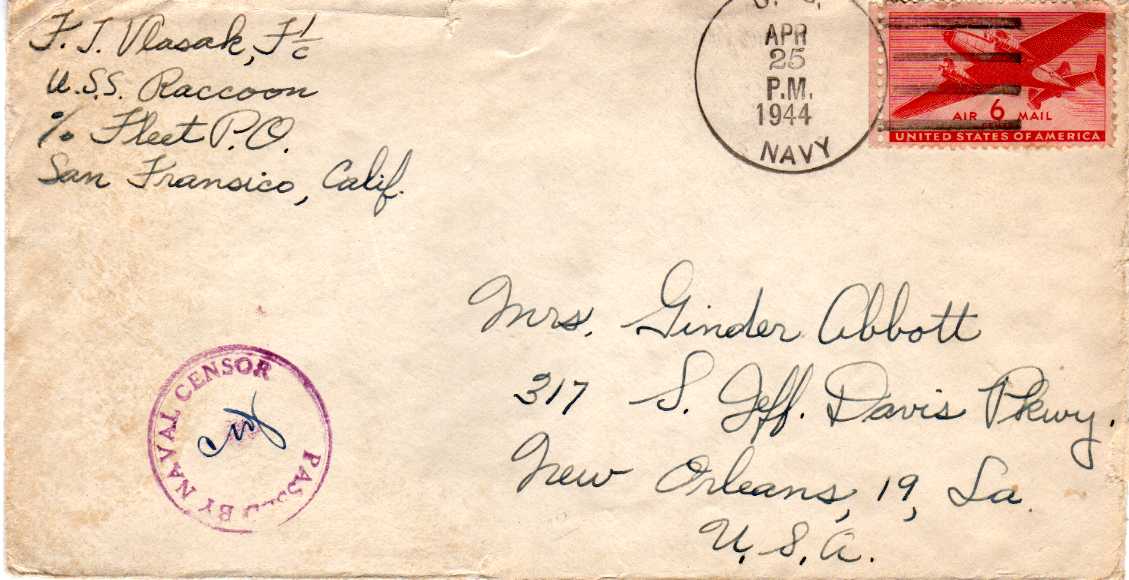 F. J. Vlasak, F 1/c
U.S.S. Raccoon
c/o Fleet P.O.
San Fransico, Calif.
APR
25
P.M.
1944
NAVY
AIR 6 MAIL
CENTS
UNITED STATES OF AMERICA
Mrs. Ginder Abbott
317 S. Jeff. Davis Pkwy.
New Orleans, 19, La.
U.S.A.
PASSED BY NAVAL CENSOR